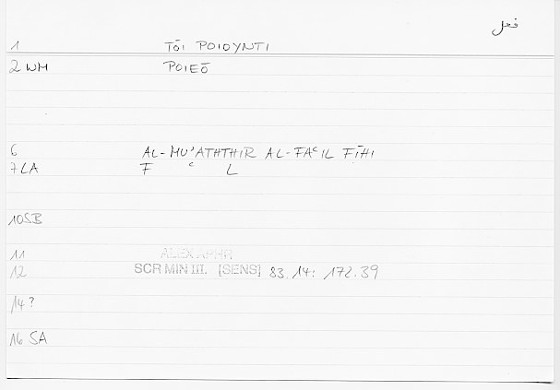 فعل
1 TŌI POIOYNTI
2 WM POIEŌ
6 AL-MU'ATHTHIR AL-FAʿIL FĪHI
7 LA F ʿ L
10 SB
11 ALEX APHR
12 SCR MIN III. (SENS) 83.14: 172.39
14 ?
16 SA